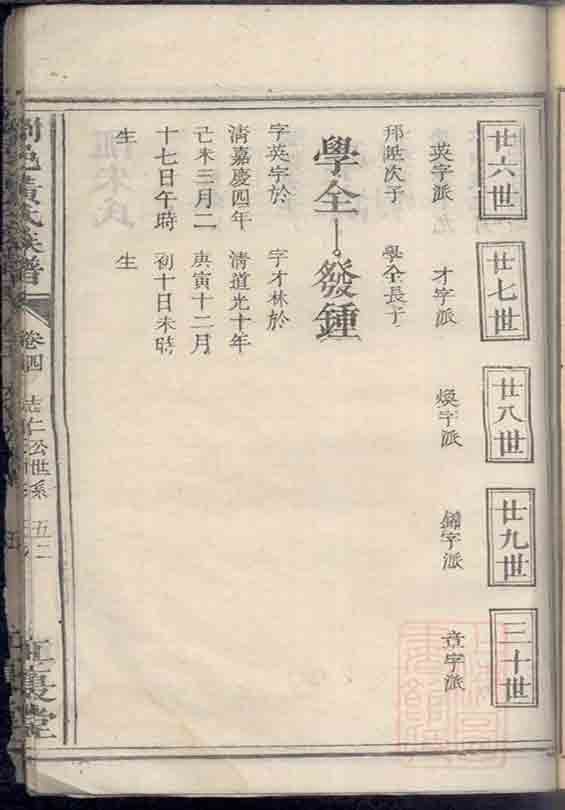 廿六世
廿七世
廿八世
廿九世
三十世
英字派
才字派
煥字派
錫字派
章字派
邦陞次子
學全長子
學全
發鍾
字英字於
字才林於
清嘉慶四年
清道光十年
己未三月二
庚寅十二月
十七日午時
初十日未時
生
生
邑黃氏族譜
卷四
志仁公世系
五二